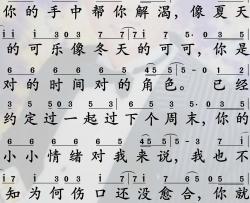 的手中帮你解渴,像夏天
i i 303 7 7i i 7 5·0 3 5
的可乐像冬天的可可,你是
6 6 6 6 6 6 5 4 5 5 5-0 1 2
对的时间对的角色。 已经
3 0 5 3 0 5 5 3 6 5 3 5·3 5
约定过一起过下个周末,你的
6 6 6 6 6 6 5 4 5 5 5-0 5
小小情绪对我来说,我也不
i 7 i 303 7 7i i 7 5·0 5
知为何伤口还没愈合,你就